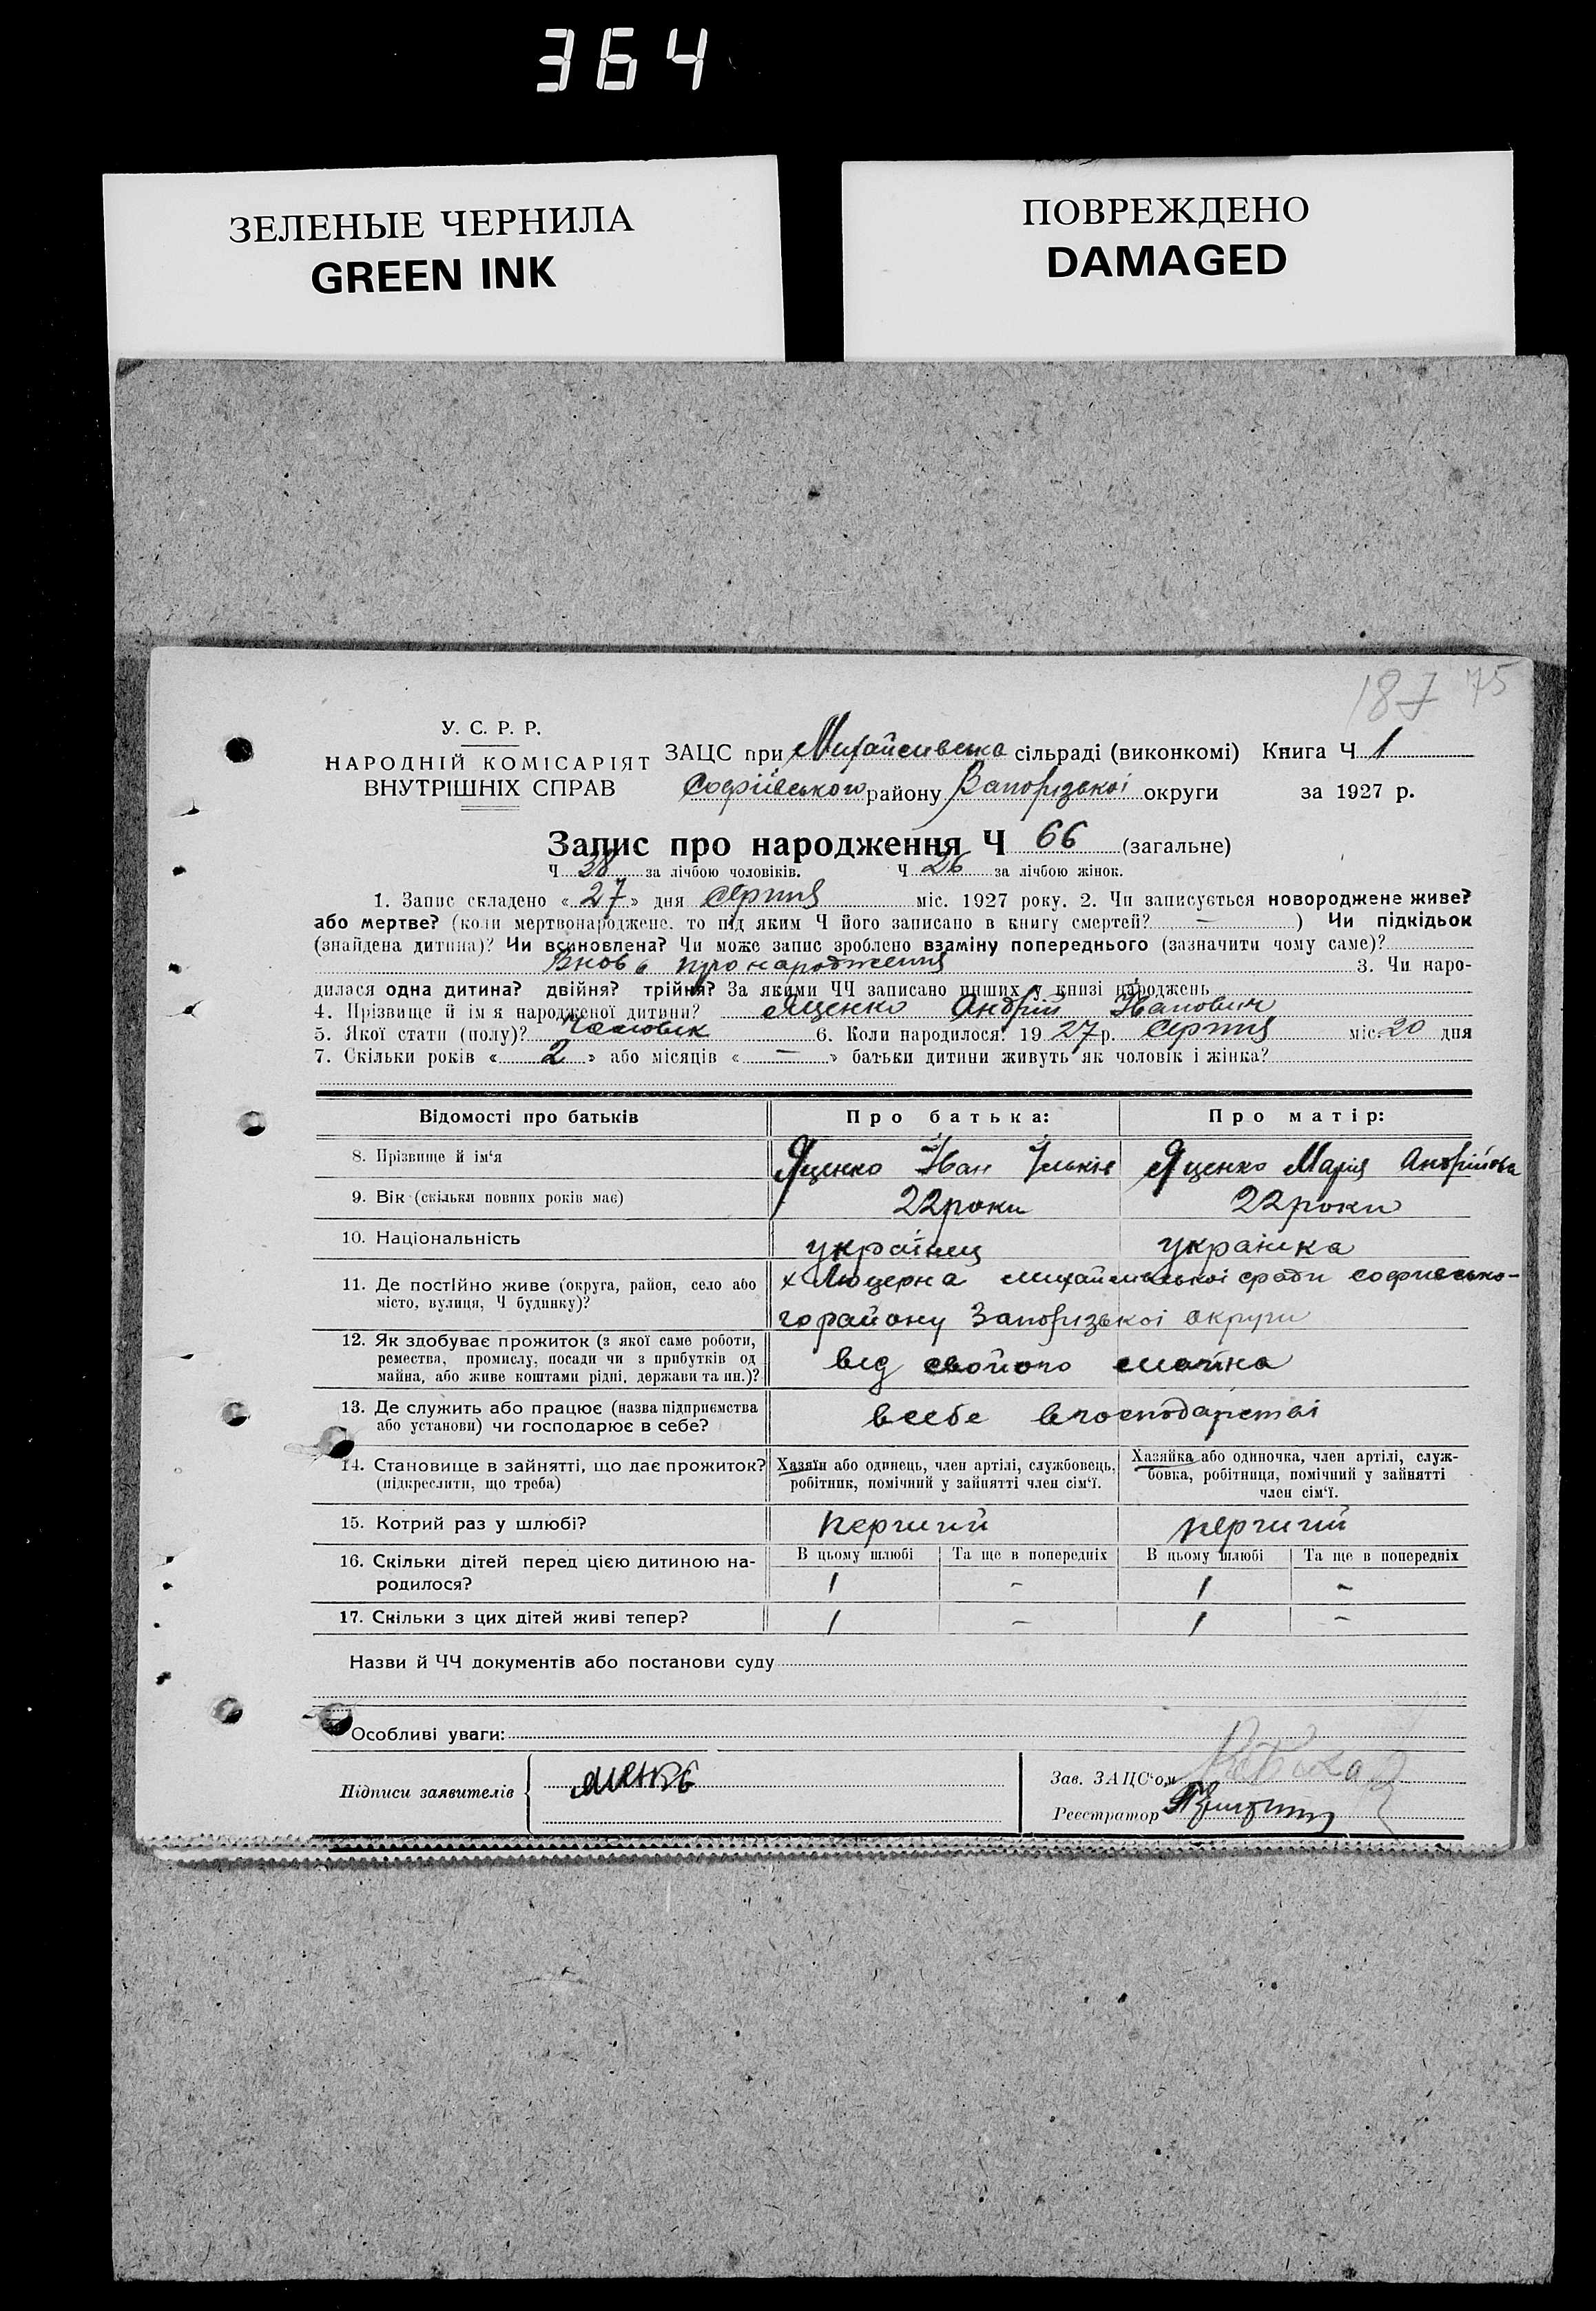 364
ЗЕЛЕНЫЕ ЧЕРНИЛА
GREEN INK
ПОВРЕЖДЕНО
DAMAGED
187 75
У. С. Р. Р.
НАРОДНІЙ КОМІСАРІЯТ
ВНУТРІШНІХ СПРАВ
ЗАЦС при Михайливська сільраді (виконкомі) Книга Ч 1
Софіївського району Запорізької округи за 1927 р.
Запис про народження Ч 66 (загальне)
Ч 38 за лічбою чоловіків. Ч 26 за лічбою жінок.
1. Запис складено « 27 » дня серпня міс. 1927 року. 2. Чи записується новороджене живе?
або мертве? (коли мертвонароджене, то під яким Ч його записано в книгу смертей? — ) Чи підкідьок
(знайдена дитина)? Чи всиновлена? Чи може запис зроблено взаміну попереднього (зазначити чому саме)?
про народження 3. Чи наро-
дилася одна дитина? двійня? трійня? За якими ЧЧ записано инших у книзі народжень
4. Прізвище й ім'я народженої дитини? Яценко Андрій Іванович
5. Якої стати (полу)? Чоловік 6. Коли народилося? 19 27 р. серпня міс. 20 дня
7. Скільки років « 2 » або місяців « — » батьки дитини живуть як чоловік і жінка?
Відомості про батьків
Про батька:
Про матір:
8. Прізвище й ім'я
Яценко Іван Ільків
Яценко Марія Андрійовна
9. Вік (скільки повних років має)
22 роки
22 роки
10. Національність
українец
українка
11. Де постійно живе (округа, район, село або
місто, вулиця, Ч будинку)?
х Люцерна михайлівської сради софиевсько-
го району Запорізької округи
12. Як здобуває прожиток (з якої саме роботи,
ремества, промислу, посади чи з прибутків од
майна, або живе коштами рідні, держави та ин.)?
від свойого майна
13. Де служить або працює (назва підприємства
або установи) чи господарює в себе?
в себе в господарстві
14. Становище в зайнятті, що дає прожиток?
(підкреслити, що треба)
Хазяїн або одинець, член артілі, службовець,
робітник, помічний у зайнятті член сім'ї.
Хазяйка або одиночка, член артілі, служ-
бовка, робітниця, помічний у зайнятті
член сім'ї.
15. Котрий раз у шлюбі?
перший
перший
16. Скільки дітей перед цією дитиною на-
родилося?
В цьому шлюбі
Та ще в попередніх
В цьому шлюбі
Та ще в попередніх
1 - 1 -
17. Скільки з цих дітей живі тепер?
1 - 1 -
Назви й ЧЧ документів або постанови суду
Особливі уваги:
Підписи заявителів
Зав. ЗАЦС'ом
Реєстратор